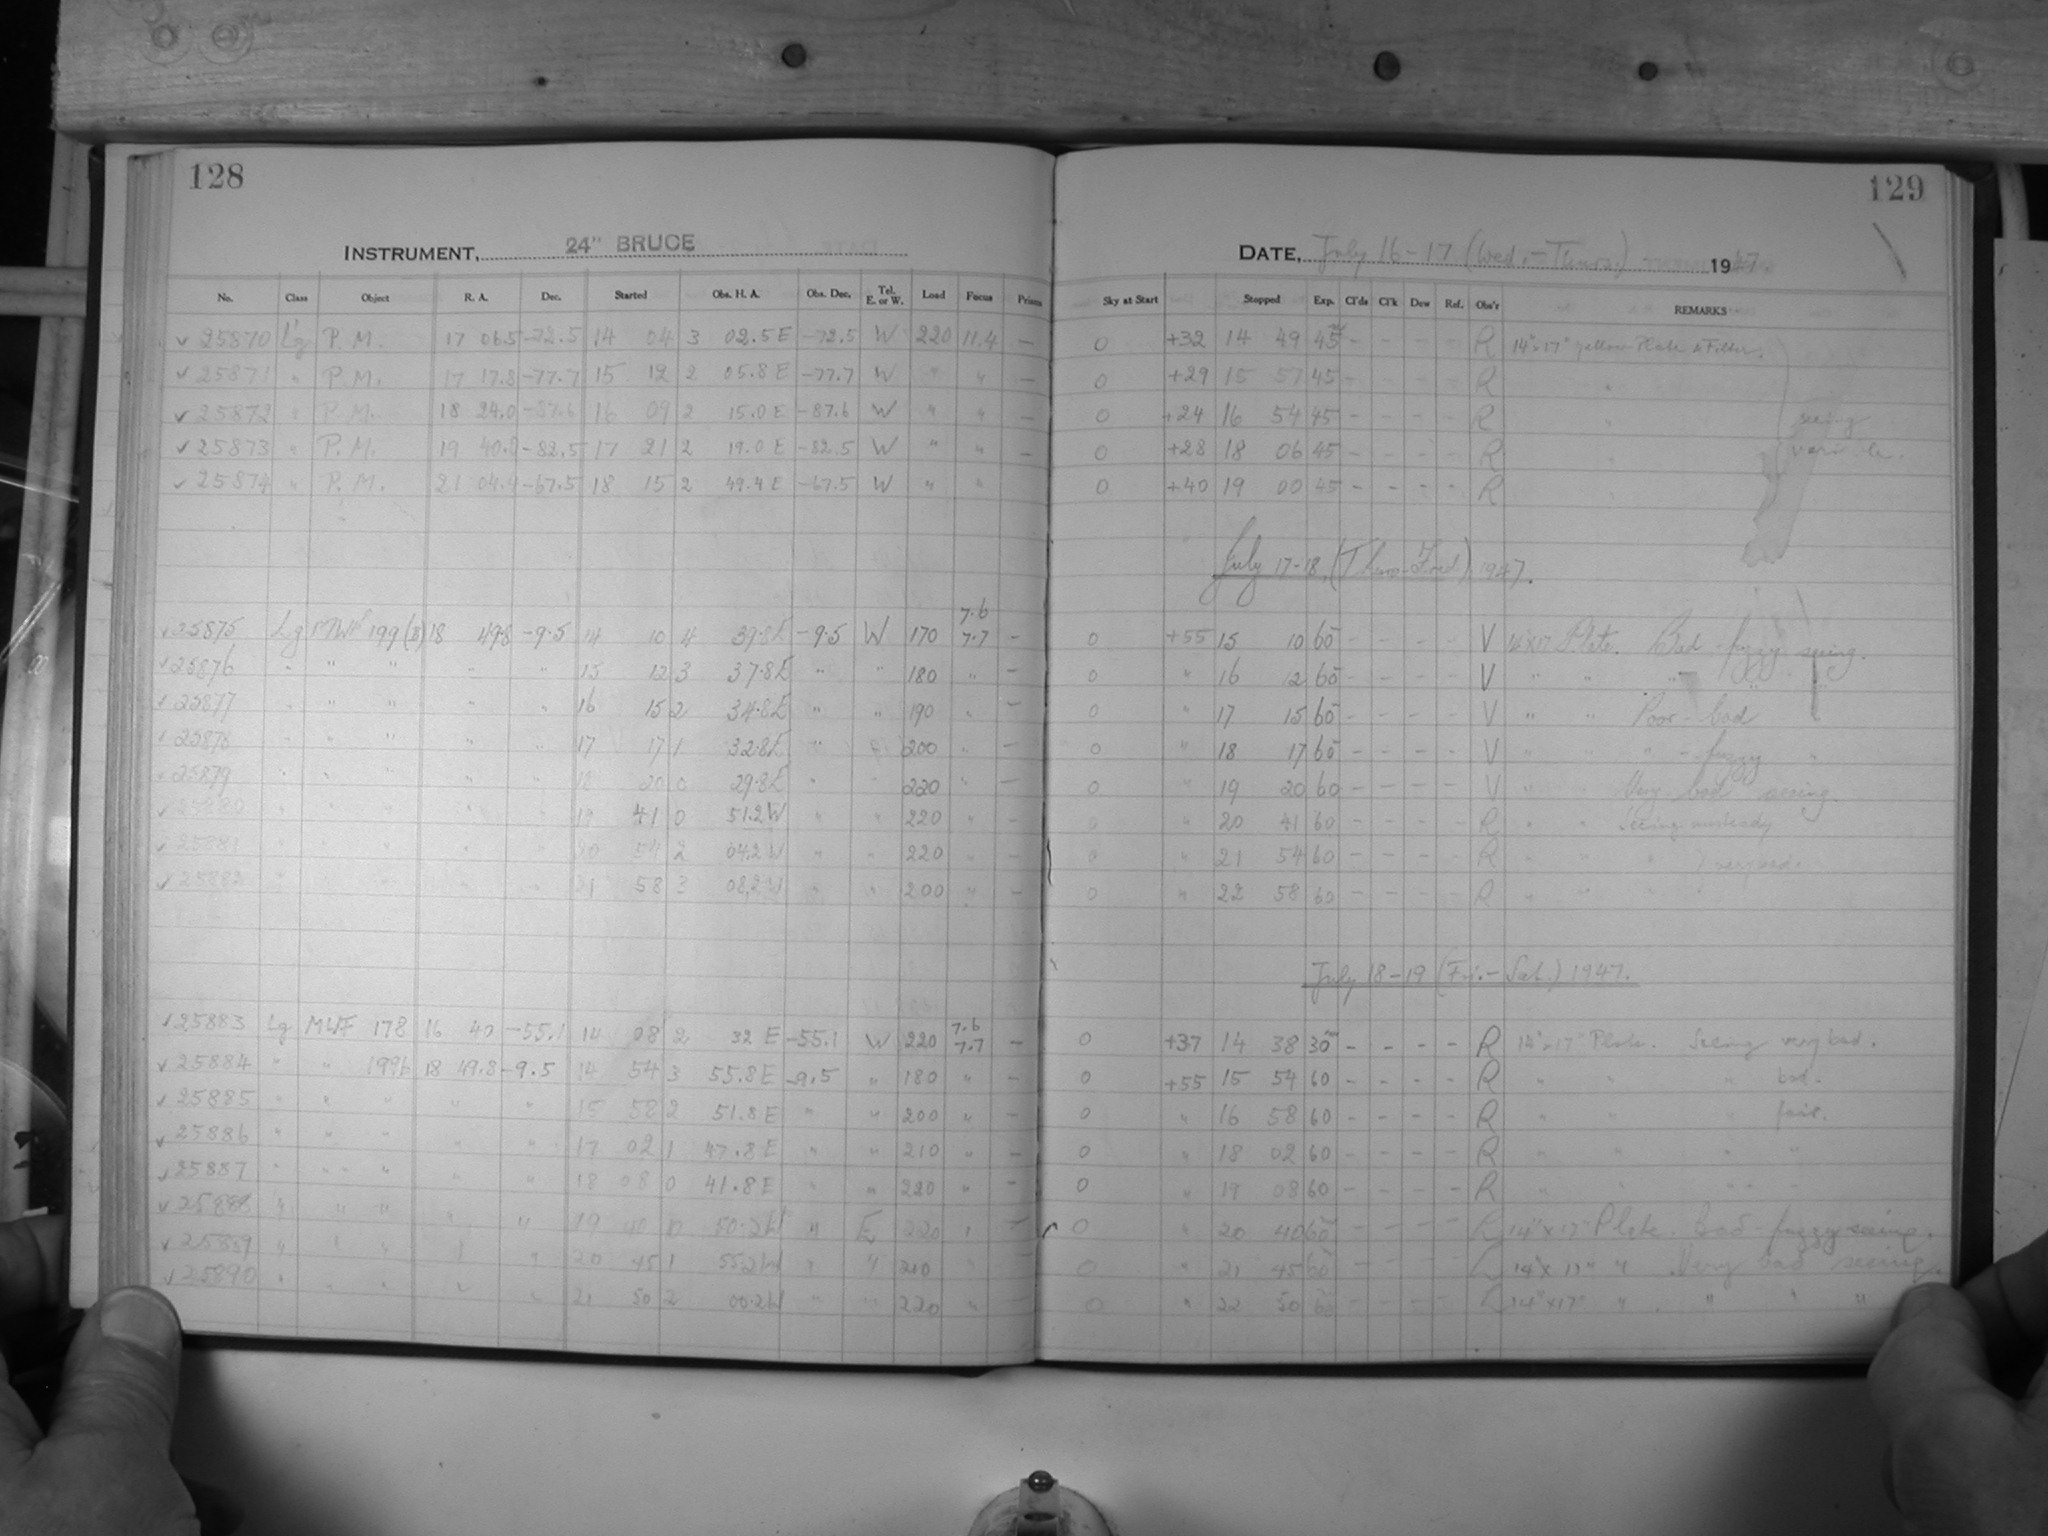 128
INSTRUMENT, 24" BRUCE
No. Class Object R. A. Dec. Started Obs. H. A. Obs. Dec. Tel. E. or W. Load Focus Prism
✓ 25870 Lg P. M. 17 06.5 -72.5 14 04 3 02.5 E -72.5 W 220 11.4 —
✓ 25871 " P.M. 17 17.8 -77.7 15 12 2 05.8 E -77.7 W " " —
✓ 25872 " P.M. 18 24.0 -87.6 16 09 2 15.0 E -87.6 W " " —
✓ 25873 " P.M. 19 40.8 -82.5 17 21 2 19.0 E -82.5 W " " —
✓ 25874 " P.M. 21 04.4 -67.5 18 15 2 49.4 E -67.5 W " "
7.6
✓ 25875 Lg MWF 199(B) 18 49.8 -9.5 14 10 4 39.8E -9.5 W 170 7.7 —
✓ 25876 " " " " " 15 12 3 37.8E " " 180 " —
✓ 25877 " " " " " 16 15 2 34.8E " " 190 " —
✓ 25878 " " " " " 17 17 1 32.8E " " 200 " —
✓ 25879 " " " " " 18 20 0 29.8E " " 220 " —
✓ 25880 " " " " " 19 41 0 51.2W " " 220 " —
✓ 25881 " " " " " 20 54 2 04.2W " " 220 " —
✓ 25882 " " " " " 21 58 3 08.2W " " 200 " —
7.6
✓ 25883 Lg MWF 178 16 40 -55.1 14 08 2 32 E -55.1 W 220 7.7 —
✓ 25884 " " 18 49.8 -9.5 14 54 3 55.8 E -9.5 " 180 " —
✓ 25885 " " " " " 15 58 2 51.8 E " " 200 " —
✓ 25886 " " " " " 17 02 1 47.8 E " " 210 " —
✓ 25887 " " " " " 18 08 0 41.8 E " " 220 " —
✓ 25888 " " " " " 19 40 0 50.2W " E 220 " —
✓ 25889 " " " " " 20 45 1 55.2W " " 210 "
✓ 25890 " " " " " 21 50 2 00.2W " " 220 "
129
DATE, July 16-17 (Wed.-Thurs.) 1947.
Sky at Start Stopped Exp. Cl'ds Cl'k Dew Ref. Obs'r REMARKS
0 +32 14 49 45 — — — — R 14"x17" yellow Plate & Filter.
0 +29 15 57 45 — — — — R "
0 +24 16 54 45 — — — — R " seeing
0 +28 18 06 45 — — — — R " variable.
0 +40 19 00 45 — — — — R "
July 17-18, (Thurs-Fri) 1947.
0 +55 15 10 60 — — — — V 14"x17" Plate. Bad - fuzzy seeing.
0 " 16 12 60 — — — — V " " " "
0 " 17 15 60 — — — — V " " Poor - bad "
0 " 18 17 60 — — — — V " " " - fuzzy "
0 " 19 20 60 — — — — V " " Very bad seeing.
0 " 20 41 60 — — — — R " " Seeing unsteady
0 " 21 54 60 — — — — R " " "
0 " 22 58 60 — — — — R " " "
July 18-19 (Fri.-Sat.) 1947.
0 +37 14 38 30 — — — — R 14"x17" Plate. Seeing very bad.
0 +55 15 54 60 — — — — R " " " bad.
0 " 16 58 60 — — — — R " " " fair.
0 " 18 02 60 — — — — R " " " "
0 " 19 08 60 — — — — R " " " "
0 " 20 40 60 — — — — 14"x17" Plate. Bad fuzzy seeing.
0 " 21 45 60 — — — — 14"x17" " Very bad seeing.
0 " 22 50 60 — — — — 14"x17" " " " "